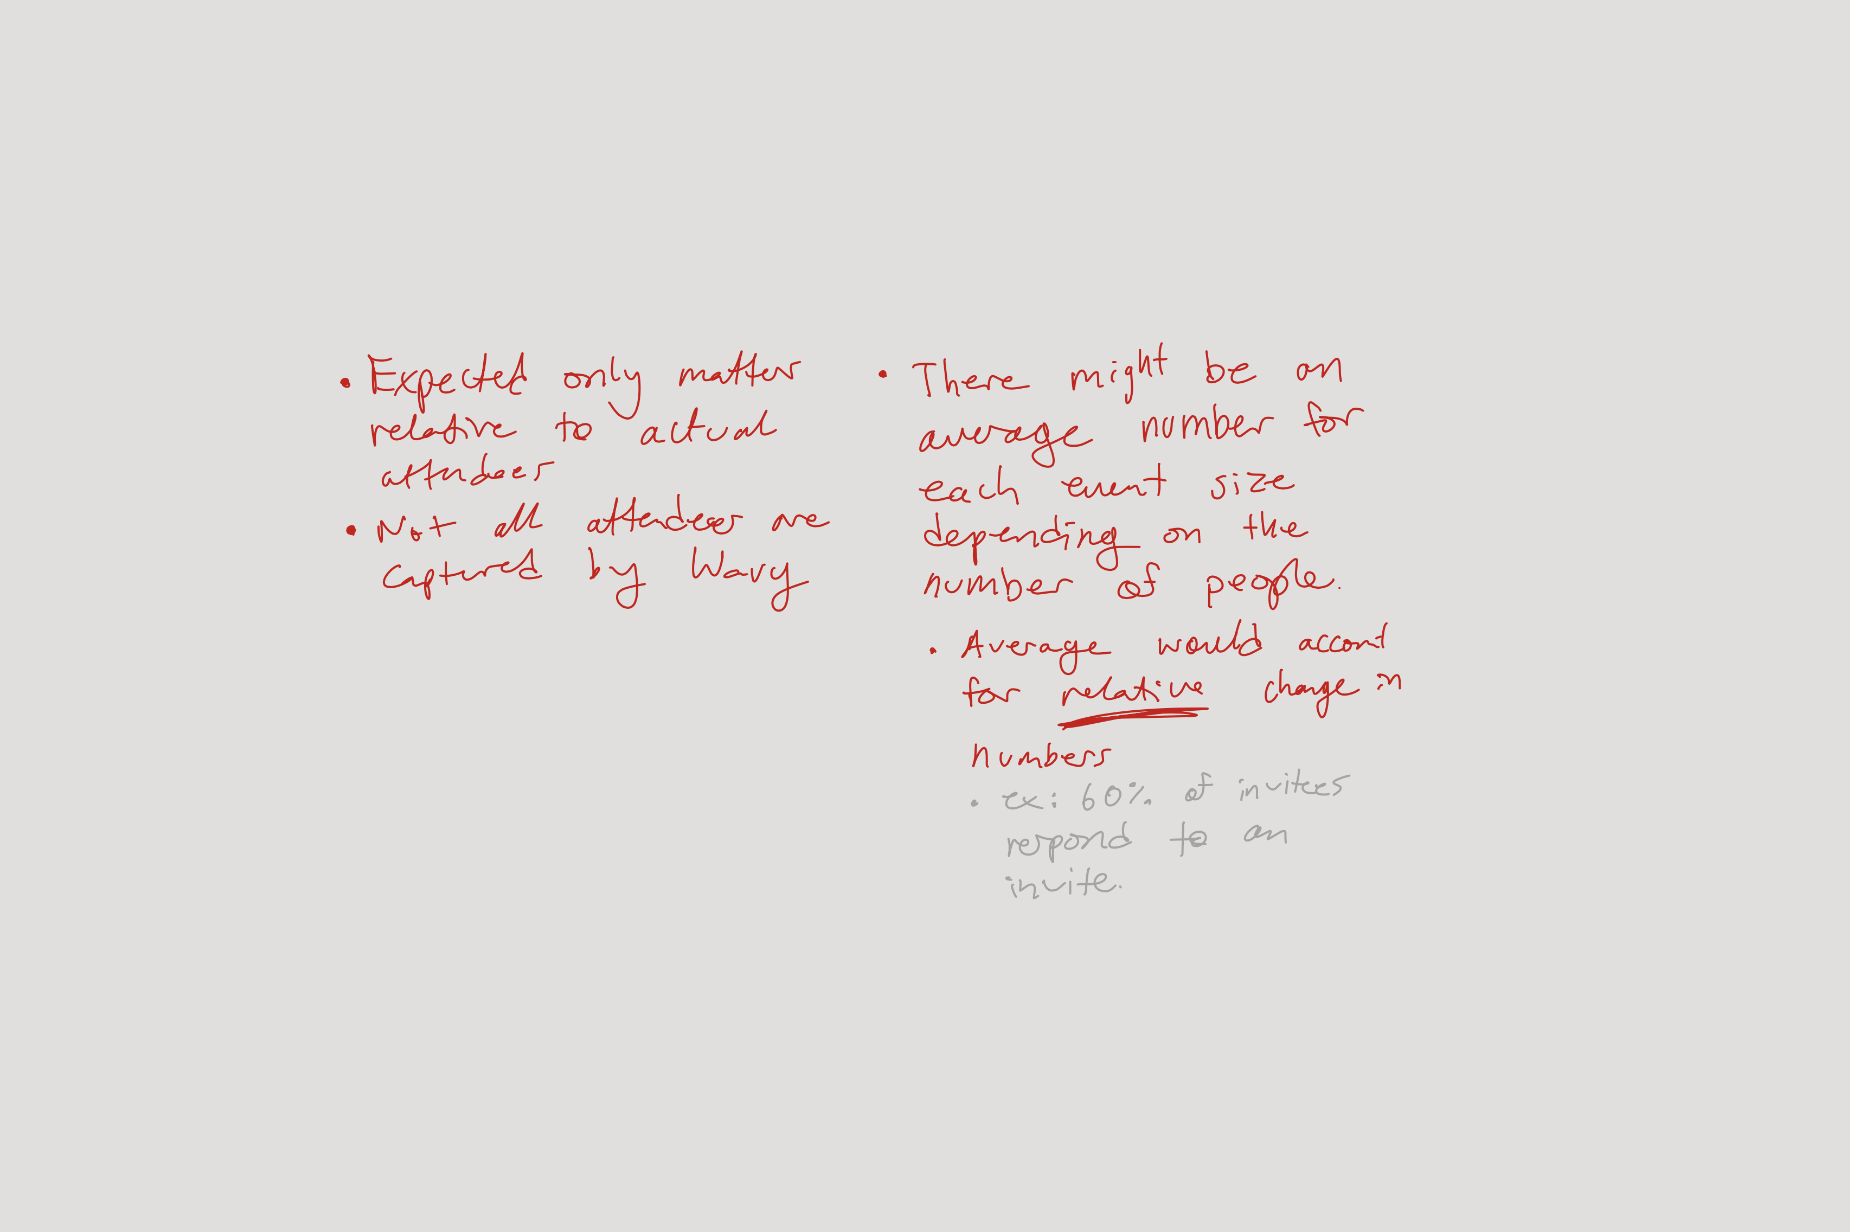 • Expected only matters
relative to actual
attendees
• Not all attendees are
captured by Wavy
• There might be an
average number for
each event size
depending on the
number of people.
• Average would account
for relative change in
numbers
• ex: 60% of invitees
respond to an
invite.